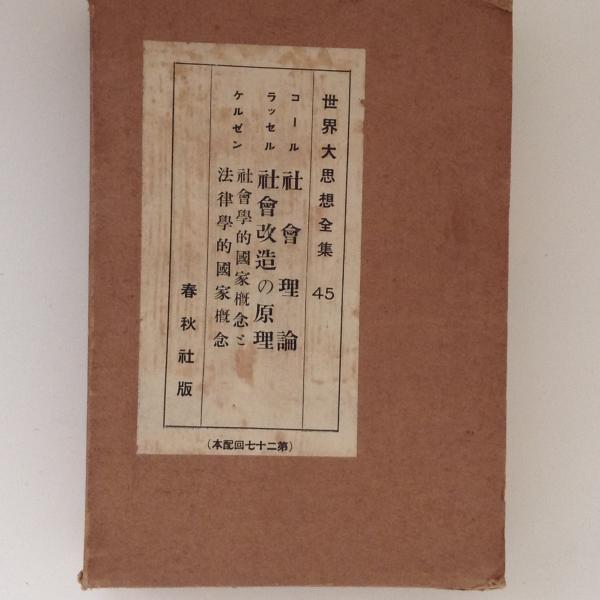 世界大思想全集 45
コール 社會理論
ラッセル 社會改造の原理
ケルゼン 社會學的國家概念と
法律學的國家概念
春秋社版
(本配回七十二第)